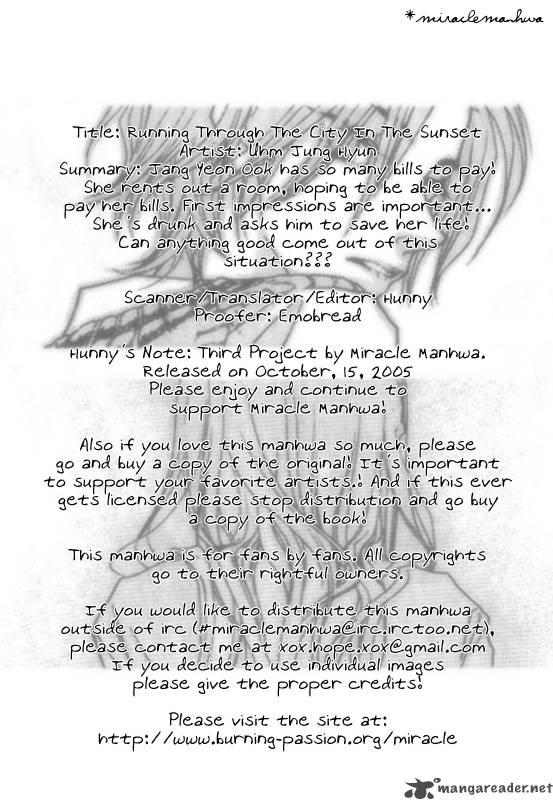 *miraclemanhwa
Title: Running Through The City In The Sunset
Artist: Uhm Jung Hyun
Summary: Jang Yeon Ook has so many bills to pay!
She rents out a room, hoping to be able to
pay her bills. First impressions are important...
She's drunk and asks him to save her life!
Can anything good come out of this
situation???
Scanner/Translator/Editor: Hunny
Proofer: Emobread
Hunny's Note: Third Project by Miracle Manhwa.
Released on October, 15, 2005
Please enjoy and continue to
support Miracle Manhwa!
Also if you love this manhwa so much, please
go and buy a copy of the original! It's important
to support your favorite artists.! And if this ever
gets licensed please stop distribution and go buy
a copy of the book!
This manhwa is for fans by fans. All copyrights
go to their rightful owners.
If you would like to distribute this manhwa
outside of irc (#miraclemanhwa@irc.irctoo.net),
please contact me at xox.hope.xox@gmail.com
If you decide to use individual images
please give the proper credits!
Please visit the site at:
http://www.burning-passion.org/miracle
mangareader.net